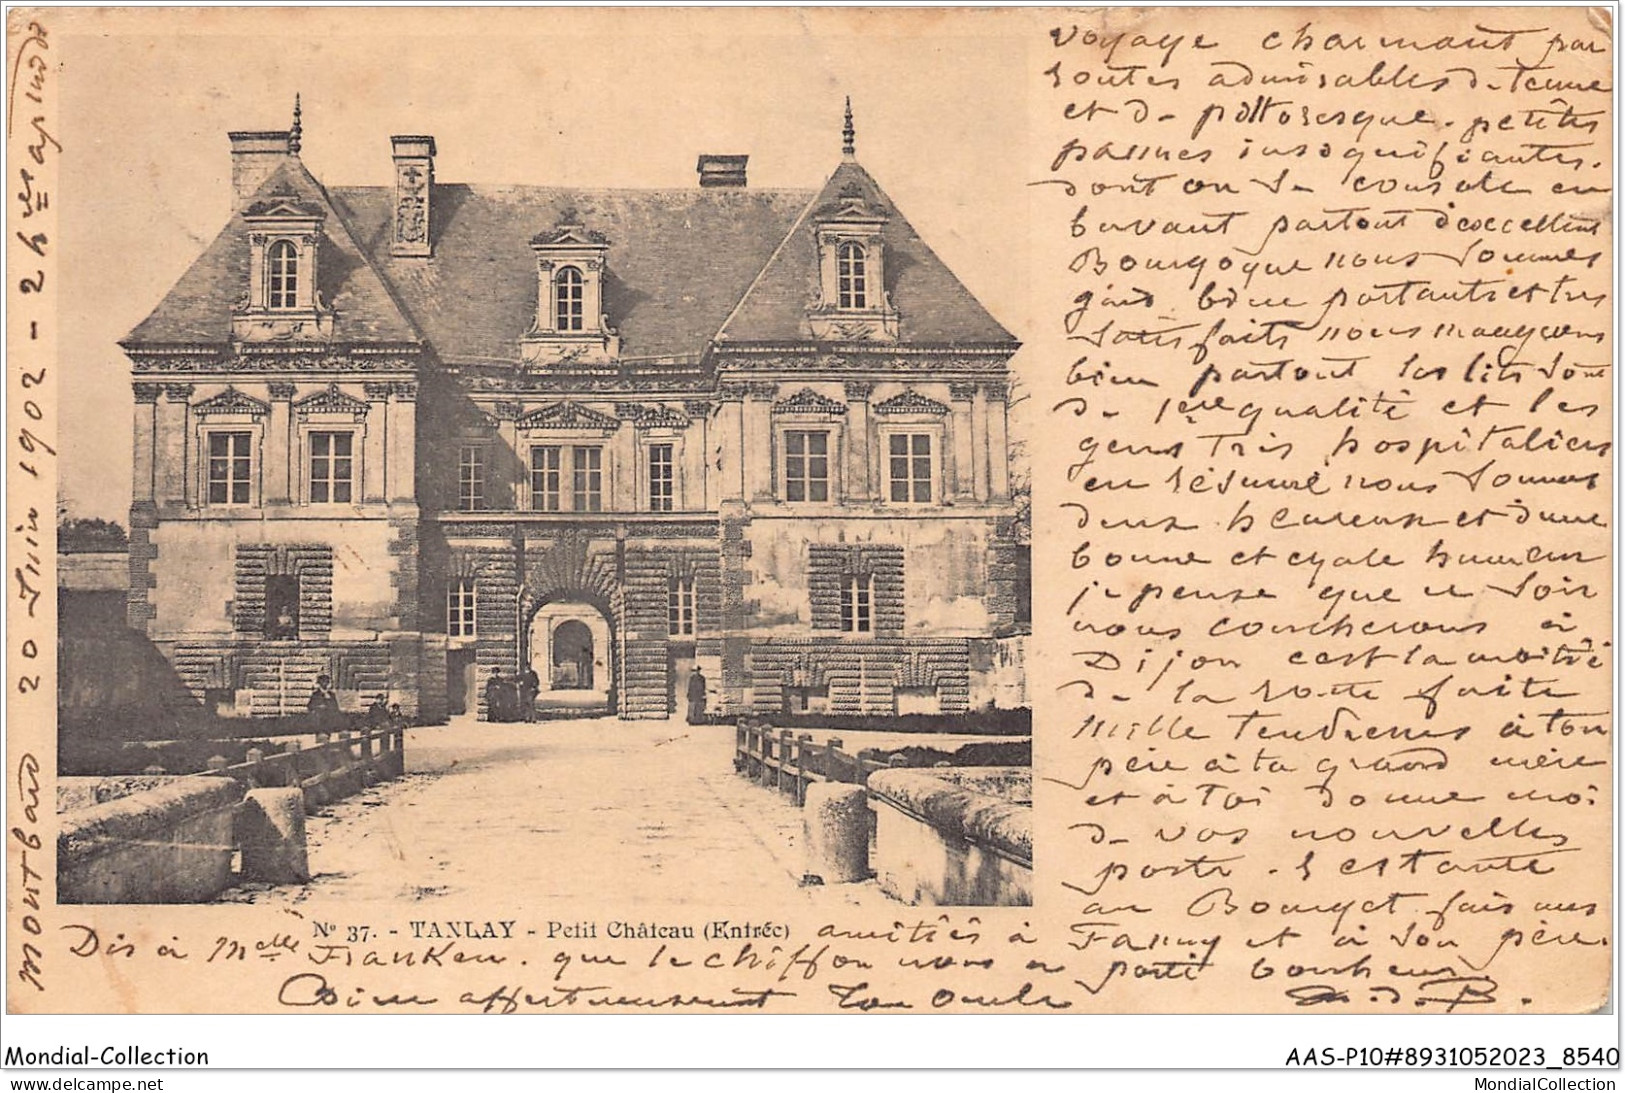 montbard 20 Juin 1902 - 2 hres après midi
voyage charmant par
routes admirables de tenue
et de pittoresque. petites
pannes insignifiantes.
dont on se console en
buvant partout d'excellent
Bourgogne nous sommes
gais bien portants et très
satisfaits nous mangeons
bien partout les lits sont
de 1ere qualité et les
gens très hospitaliers
en résumé nous sommes
deux heureux et d'une
bonne et égale humeur
je pense que ce soir
nous coucherons à
Dijon c'est la moitié
de la route faite
Mille tendresses à ton
père à ta grand mère
et à toi donne moi
de vos nouvelles
poste. restante
au Bourget. fais mes
amitiés à Fanny et à son père.
No 37. - TANLAY - Petit Château (Entrée)
Dis à Melle Franken. que le chiffon nous a porté bonheur.
Bien affectueusement ton oncle
M. d. B.
Mondial-Collection
AAS-P10#8931052023_8540
www.delcampe.net
MondialCollection